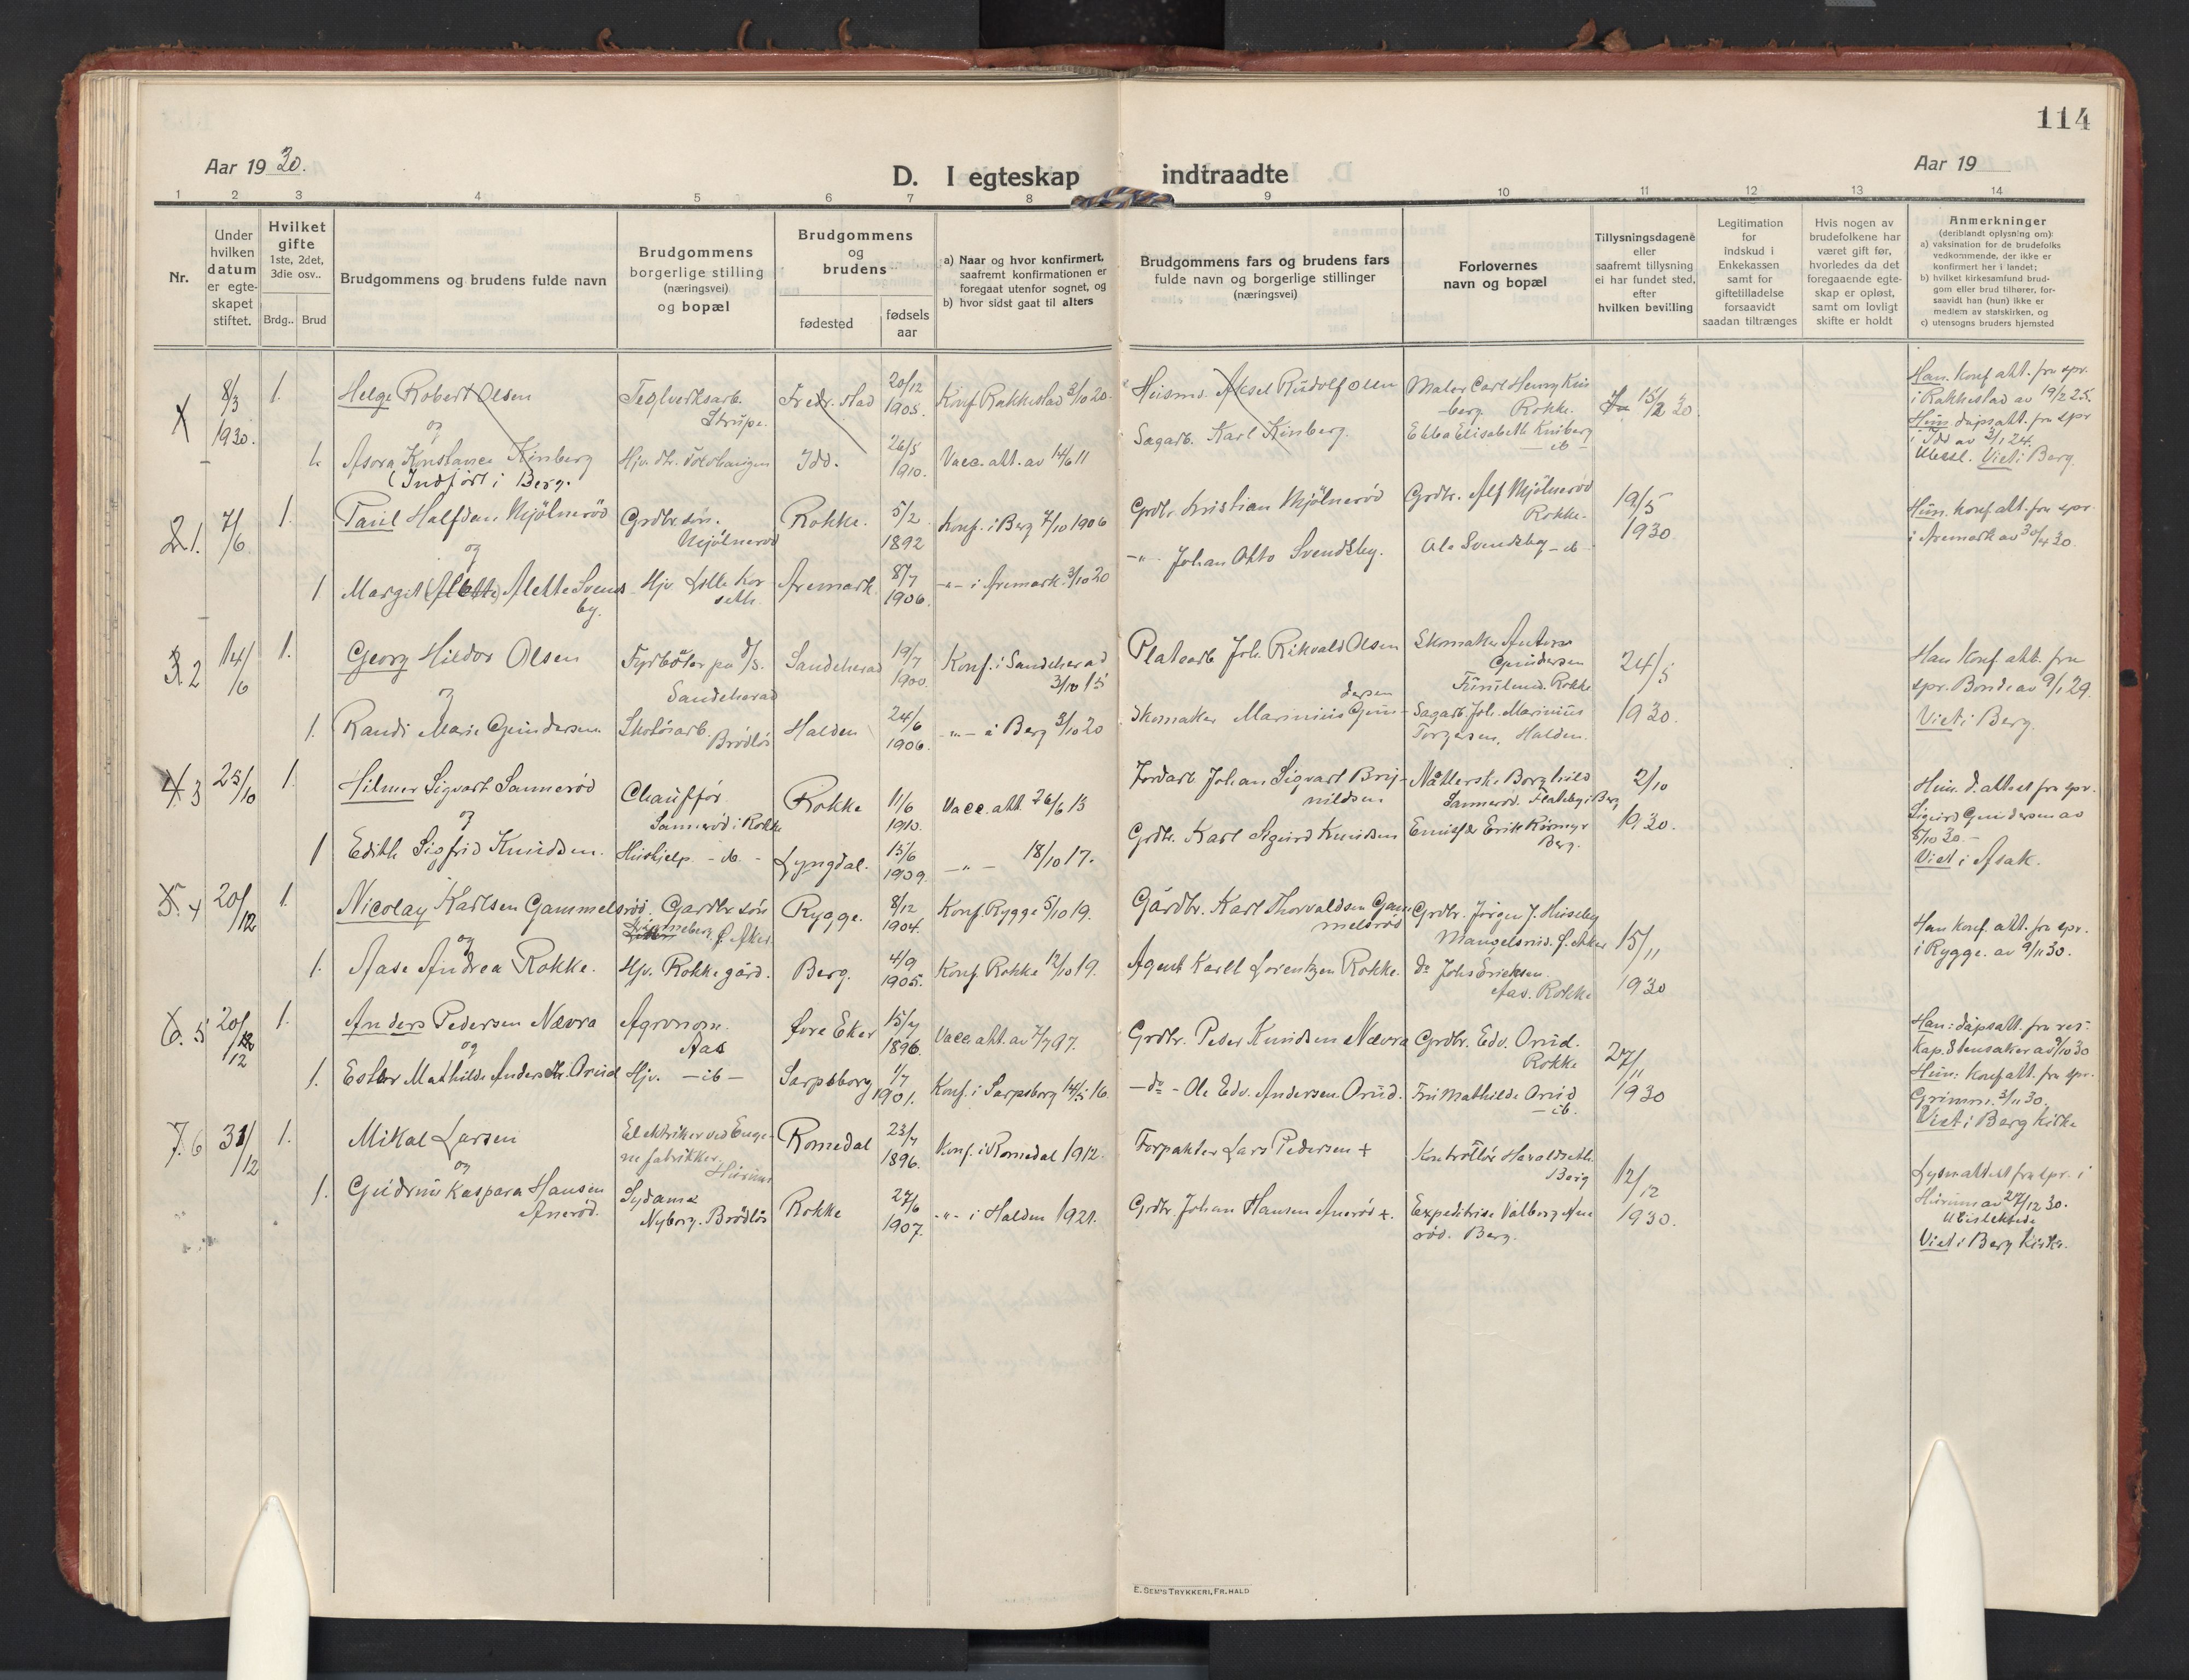 114
Aar 1930.
D. I egteskap indtraadte
Aar 19
1 2 3 4 5 6 7 8 9 10 11 12 13 14
Nr.
Under
hvilken
datum
er egte-
skapet
stiftet.
Hvilket
gifte
1ste, 2det,
3die osv..
Brdg.. Brud
Brudgommens og brudens fulde navn
Brudgommens
borgerlige stilling
(næringsvei)
og bopæl
Brudgommens
og
brudens
fødested
fødsels
aar
a) Naar og hvor konfirmert,
saafremt konfirmationen er
foregaat utenfor sognet, og
b) hvor sidst gaat til alters
Brudgommens fars og brudens fars
fulde navn og borgerlige stillinger
(næringsvei)
Forlovernes
navn og bopæl
Tillysningsdagene
eller
saafremt tillysning
ei har fundet sted,
efter
hvilken bevilling
Legitimation
for
indskud i
Enkekassen
samt for
giftetilladelse
forsaavidt
saadan tiltrænges
Hvis nogen av
brudefolkene har
været gift før,
hvorledes da det
foregaaende egte-
skap er opløst,
samt om lovligt
skifte er holdt
Anmerkninger
(deriblandt oplysning om):
a) vaksination for de brudefolks
vedkommende, der ikke er
konfirmert her i landet;
b) hvilket kirkesamfund brud-
gom eller brud tilhører, for-
saavidt han (hun) ikke er
medlem av statskirken, og
c) utensogns bruders hjemsted
8/3
1930.
1.
Helge Robert Olsen
og
Teglverksarb.
Strupe.
Fredr.stad
20/12
1905.
Konf. Rakkestad 3/10 20.
Aksel Rudolf Olsen
Maler Carl Henry Kin
berg. Rokke.
15/2 30.
Han. Konf. att. fra spr.
i Rakkestad av 19/2 25.
Hun dåpsatt. fra spr
i Idd av 3/1 24.
Viet i Berg.
1.
Asora Konstance Kinberg
(Indført i Berg.
Idd.
26/5
1910.
Vacc. att. av 14/6 11
Sagarb. Karl Kinberg.
Ebba Elisabeth Kinberg
- ib -
21.
7/6
1.
Paul Halfdan Mjölneröd
og
Grdbr. søn.
Mjölneröd
Rokke.
5/2
1892
Konf. i Berg 7/10 1906
Grdbr. Kristian Mjölneröd
Grdbr. Alf Mjölneröd
Rokke.
19/5
1930
Hun. Konf. att. fra spr.
i Aremark av 30/4 30.
1
Margit (Alette) Alette Svends
by.
Hjv. Lille Kor
seth
Aremark
8/7
1906.
-"- i Aremark. 3/10 20
-"- Johan Otto Svendsby.
Ole Svendsby - ib
3. 2
14/6
1.
Georg Hildor Olsen
og
Fyrböter på d/s.
Sandeherad
Sandeherad
19/7
1900.
Konf. i Sandeherad
3/10 15
Platearb. Joh. Rikvald Olsen
Skomaker Anton
Gundersen
Rokke
24/5
1930.
Han Konf. att. fra
spr. Bonde av 9/1 29.
Viet i Berg.
1.
Randi Marie Gundersen
Skotöiarb.
Brödlös
Halden
24/6
1906.
-"- i Berg 3/10 20
Skomaker Marinius Gun-
dersen
Sagarb. Joh. Marinius
Torgersen, Halden.
4. 3
25/10
1.
Hilmer Sigvart Sanneröd
og
Chaufför
Sanneröd i Rokke
Rokke
11/6
1910.
Vacc. att 26/6 13
Jordarb Johan Sigvart Bryn-
mildsen
Borghild
Sanneröd. Flateby i Berg
2/10
1930.
Hun. d. attest fra spr.
Sigurd Gundersen av
8/10 30. -
Viet i Asak.
1
Edith Sigfrid Knudsen.
Hushjelp - ib. -
Lyngdal.
15/6
1909.
-"- 18/10 17.
Grdbr. Karl Sigurd Knudsen
Berg.
5. 4
20/12
1.
Nicolay Karlsen Gammelsröd.
og
Gardbr. sön
Rygge.
8/12
1904.
Konf. Rygge 5/10 19.
Gårdbr. Karl Thorvaldsen Gam
melsröd
Grdbr. Jörgen J. Huseby
15/11
1930
Han konf. att. fra spr.
i Rygge. av 9/11 30.
1.
Aase Andrea Rokke.
Hjv. Rokke gård.
Berg.
4/9
1905.
Konf. Rokke 12/10 19.
Agent Karl Lorentzen Rokke.
do Johs Ericksen.
Aas. Rokke
6. 5
20/12
1.
Anders Pedersen Nævra
og
Agronom.
Aas
Övre Eker
15/7
1896.
Vacc. att. av 7/7 97.
Grdbr. Peder Knudsen Nævra
Grdbr. Edv. Orud.
Rokke
27/11
1930
Han: dåpsatt. fra res.
Kap. Stensaker av 9/10 30
Hun: konf. att. fra spr.
Grimm. 3/11 30.
Viet i Berg Kirke
1.
Ester Mathilde Andersdtr. Orud
Hjv. - ib -
Sarpsborg
1/7
1901.
Konf. i Sarpsborg 14/5 16.
- do - Ole Edv. Andersen Orud.
Fru Mathilde Orud
- ib.
7. 6
31/12
1.
Mikal Larsen
og
Elektriker ved Enge-
ne fabrikker.
Hurum
Romedal
23/7
1896.
Konf. i Romedal 1912.
Forpakter Lars Pedersen +
Kontrollör Haraldseth
Berg
12/12
1930.
Lysn. attest fra spr. i
Hurum av 27/12 30.
Viet i Berg Kirke.
1.
Gudrun Kaspara Hansen
Aneröd.
Sydame
Nyborg. Brödlös
Rokke
27/6
1907.
-"- i Halden 1921.
Grdbr. Johan Hansen Aneröd +.
Expeditrise Valborg Ane
röd. Berg.
E. SEM'S TRYKKERI, FR.HALD